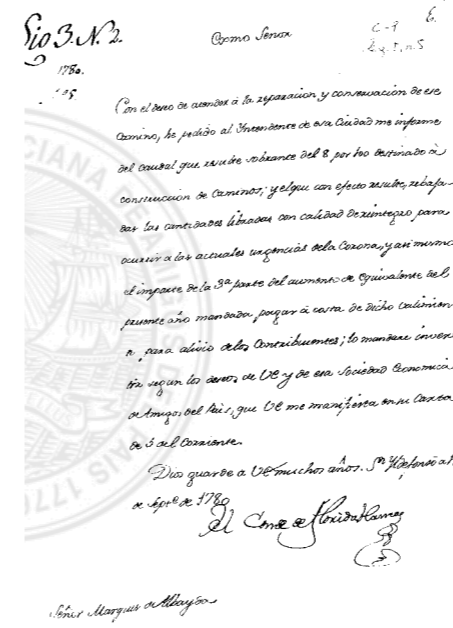 Lio 3. N. 2.
1780.
Exmo Señor
C-9
Leg. I, n. 5
6.
Con el deseo de atender à la reparacion y conservacion de ese
Camino, he pedido al Yntendente de esa Ciudad me informe
del Caudal que resulte sobrante del 8 por 100 destinado à
construccion de Caminos; y el que con efecto resulte, rebaja-
das las cantidades libradas con calidad de reintegro para
ocurrir a las actuales urgencias de la Corona, y asi mismo
el importe de la 3ª parte del aumento de Equivalente del
presente año mandada pagar à costa de dicho
para alivio de los Contribuentes; lo mandare inver-
tir segun los deseos de VE y de esa Sociedad Economica
de Amigos del Pais, que VE me manifiesta en su Carta
de 5 del Corriente.
Dios guarde a VE muchos años. Sn Yldefonso a
de Septe de 1780
El Conde de Floridablanca
Señor Marques de Albayda
CIANA
PAIS 177